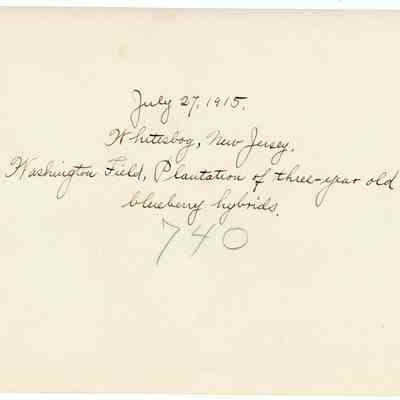 July 27, 1915.
Whitesbog, New Jersey.
Washington Field, Plantation of three-year old
blueberry hybrids.
740